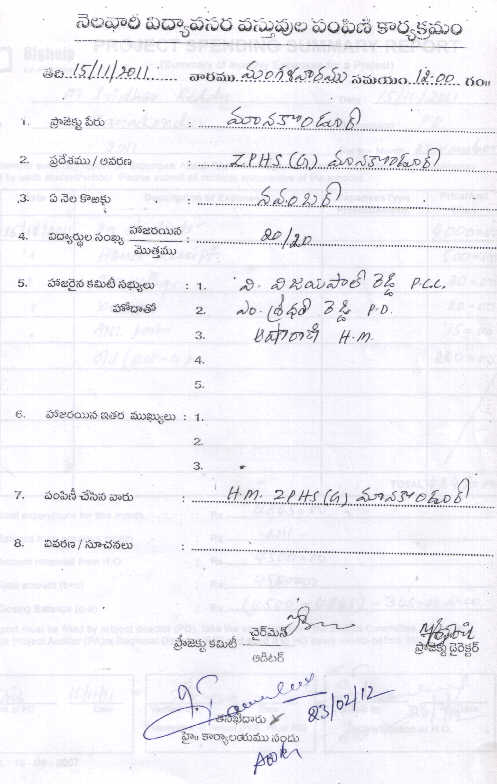 నెలవారి విద్యావసర వస్తువుల పంపిణి కార్యక్రమం
తేది 15/11/2011 వారము మంగళవారము సమయం 12:00 గం॥
1. ప్రాజెక్టు పేరు : మానకొండూర్
2. ప్రదేశము / ఆవరణ : ZPHS (G) మానకొండూర్
3. ఏ నెల కొఱకు : నవంబర్
4. విద్యార్థుల సంఖ్య హాజరయిన / మొత్తము : 20/20
5. హాజరైన కమిటీ సభ్యులు : 1. వి. విజయపాల్ రెడ్డి P.C.C.
హోదాతో 2. ఎం. శ్రీధర్ రెడ్డి P.D.
3. ఆషారాణి H.M.
4.
5.
6. హాజరయిన ఇతర ముఖ్యులు : 1.
2.
3.
7. పంపిణీ చేసిన వారు : H.M. ZPHS (G) మానకొండూర్
8. వివరణ / సూచనలు :
ప్రాజెక్టు కమిటీ చైర్మెన్ / ఆడిటర్
ప్రాజెక్టు డైరెక్టర్
23/02/12
తనిఖీదారు
హై॥ కార్యాలయము నందు